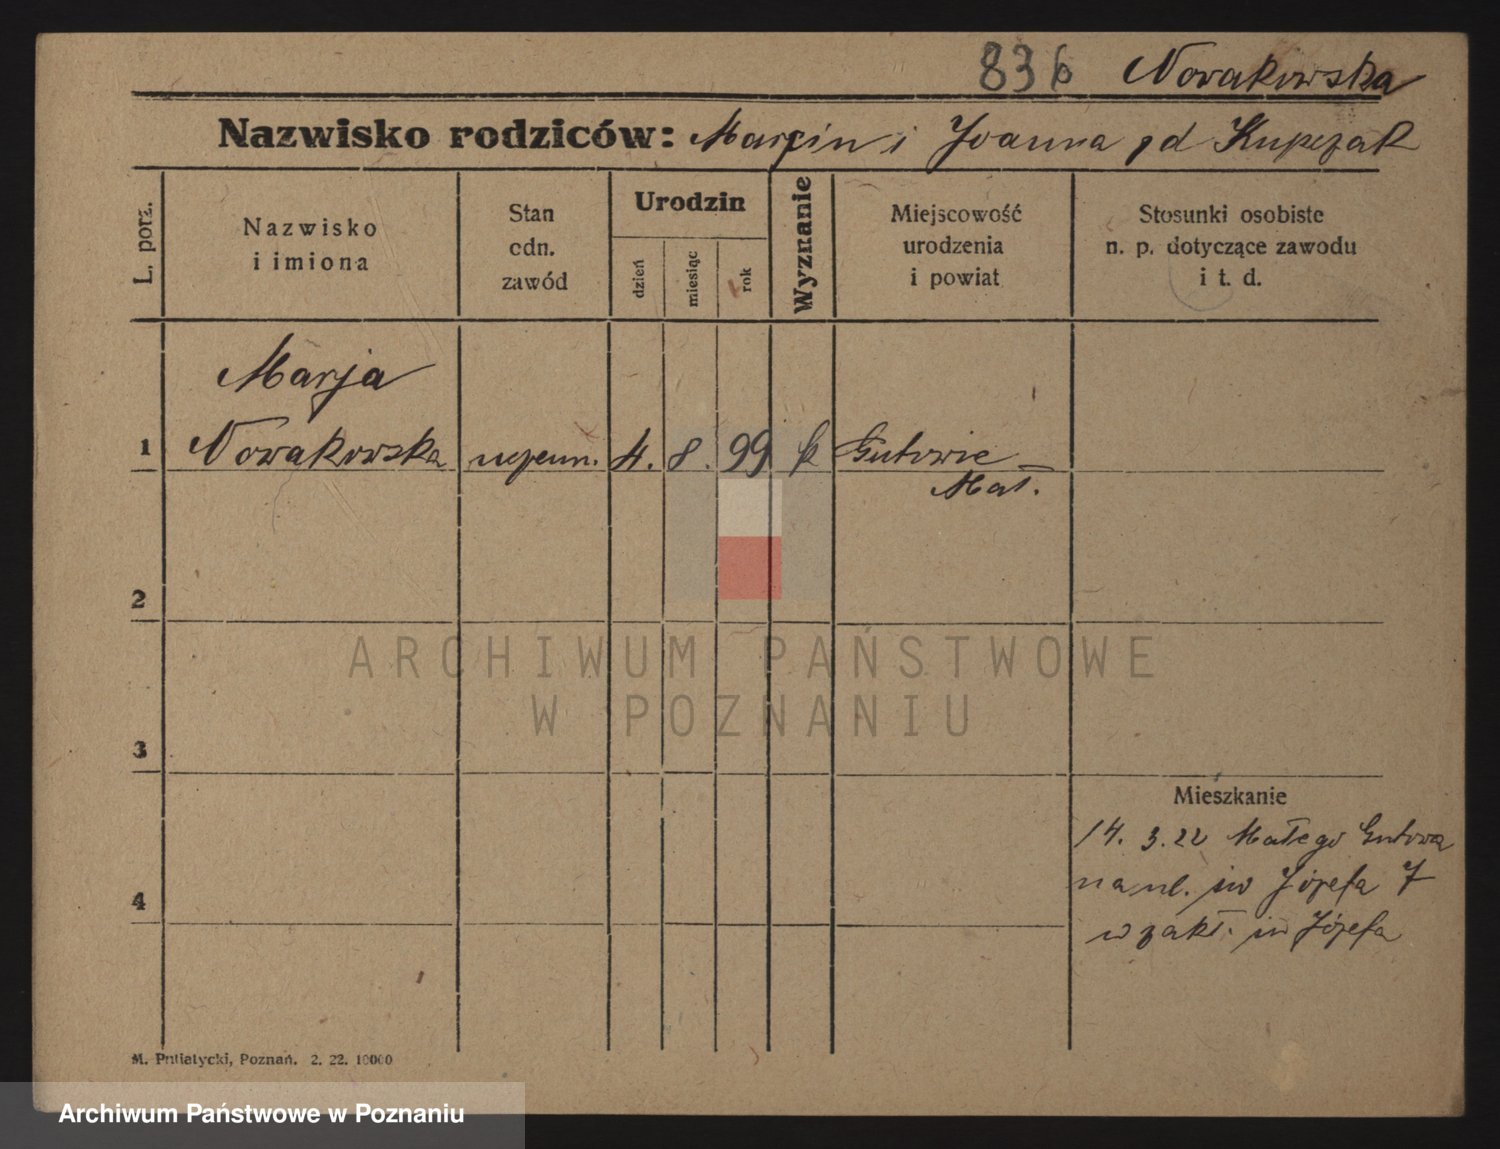 836 Nowakowska
Nazwisko rodziców: Marcin i Joanna zd Kupczak
L. porz.
Nazwisko
i imiona
Stan
cdn.
zawód
Urodzin
dzień
miesiąc
rok
Wyznanie
Miejscowość
urodzenia
i powiat
Stosunki osobiste
n. p. dotyczące zawodu
i t. d.
Marja
1 Nowakowska 4. 8. 99 k Gutowie
Mał.
2
ARCHIWUM PAŃSTWOWE
W POZNANIU
3
Mieszkanie
14. 3. 22 Małego Gutowa
na ul. św Józefa 7
4
w zakł. św Józefa
M. Putiatycki, Poznań. 2. 22. 10000
Archiwum Państwowe w Poznaniu